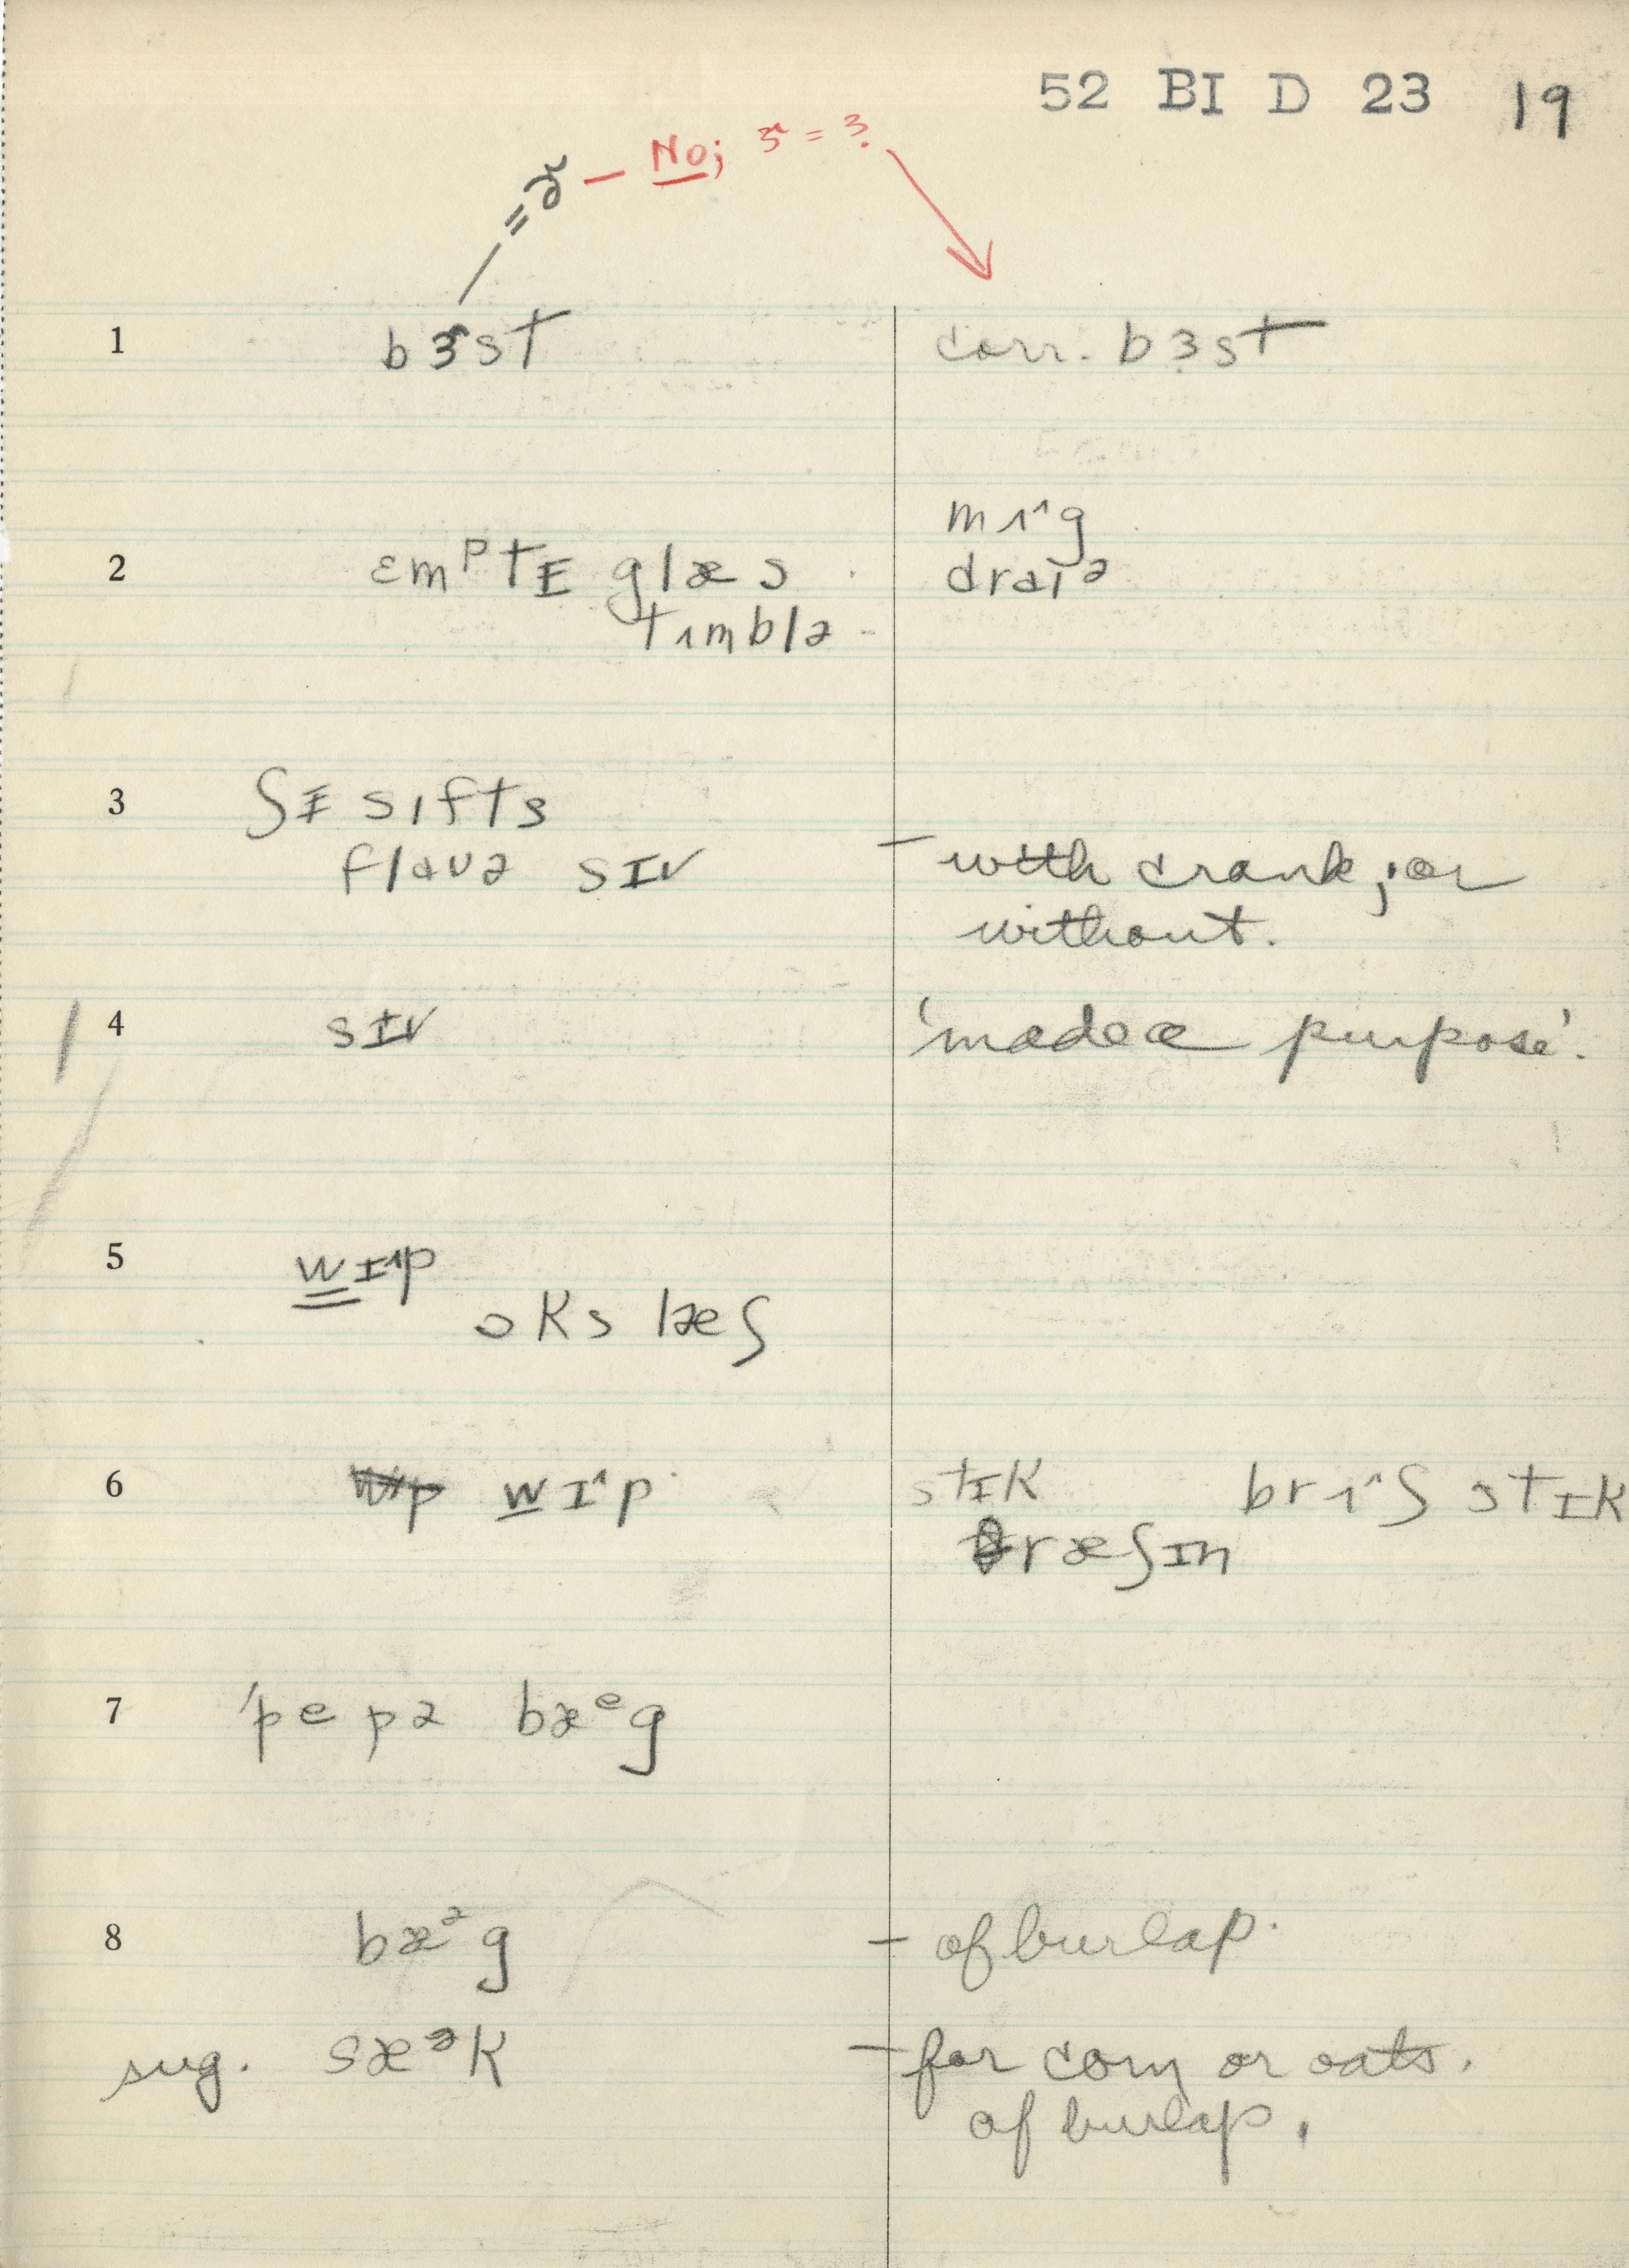 52 BI D 23 19
= ɚ — No; ɝ = ɜ.
1 bɝst corr. bɜst
mɪ˄g
2 ɛmᵖtɪ glæs draɪᵊ
tɪmblə
3 ʃɪ sɪfts
flauə sɪv – with crank, or
without.
4 sɪv 'made a purpose'.
5 wɪ˄p
oks læʃ
6 wɪ˄p stɪk brɪ˄ʃ stɪk
θræʃɪn
7 'pepə bæᵉg
8 bæᵊg – of burlap.
sug. sæᵊk – for corn or oats.
of burlap.